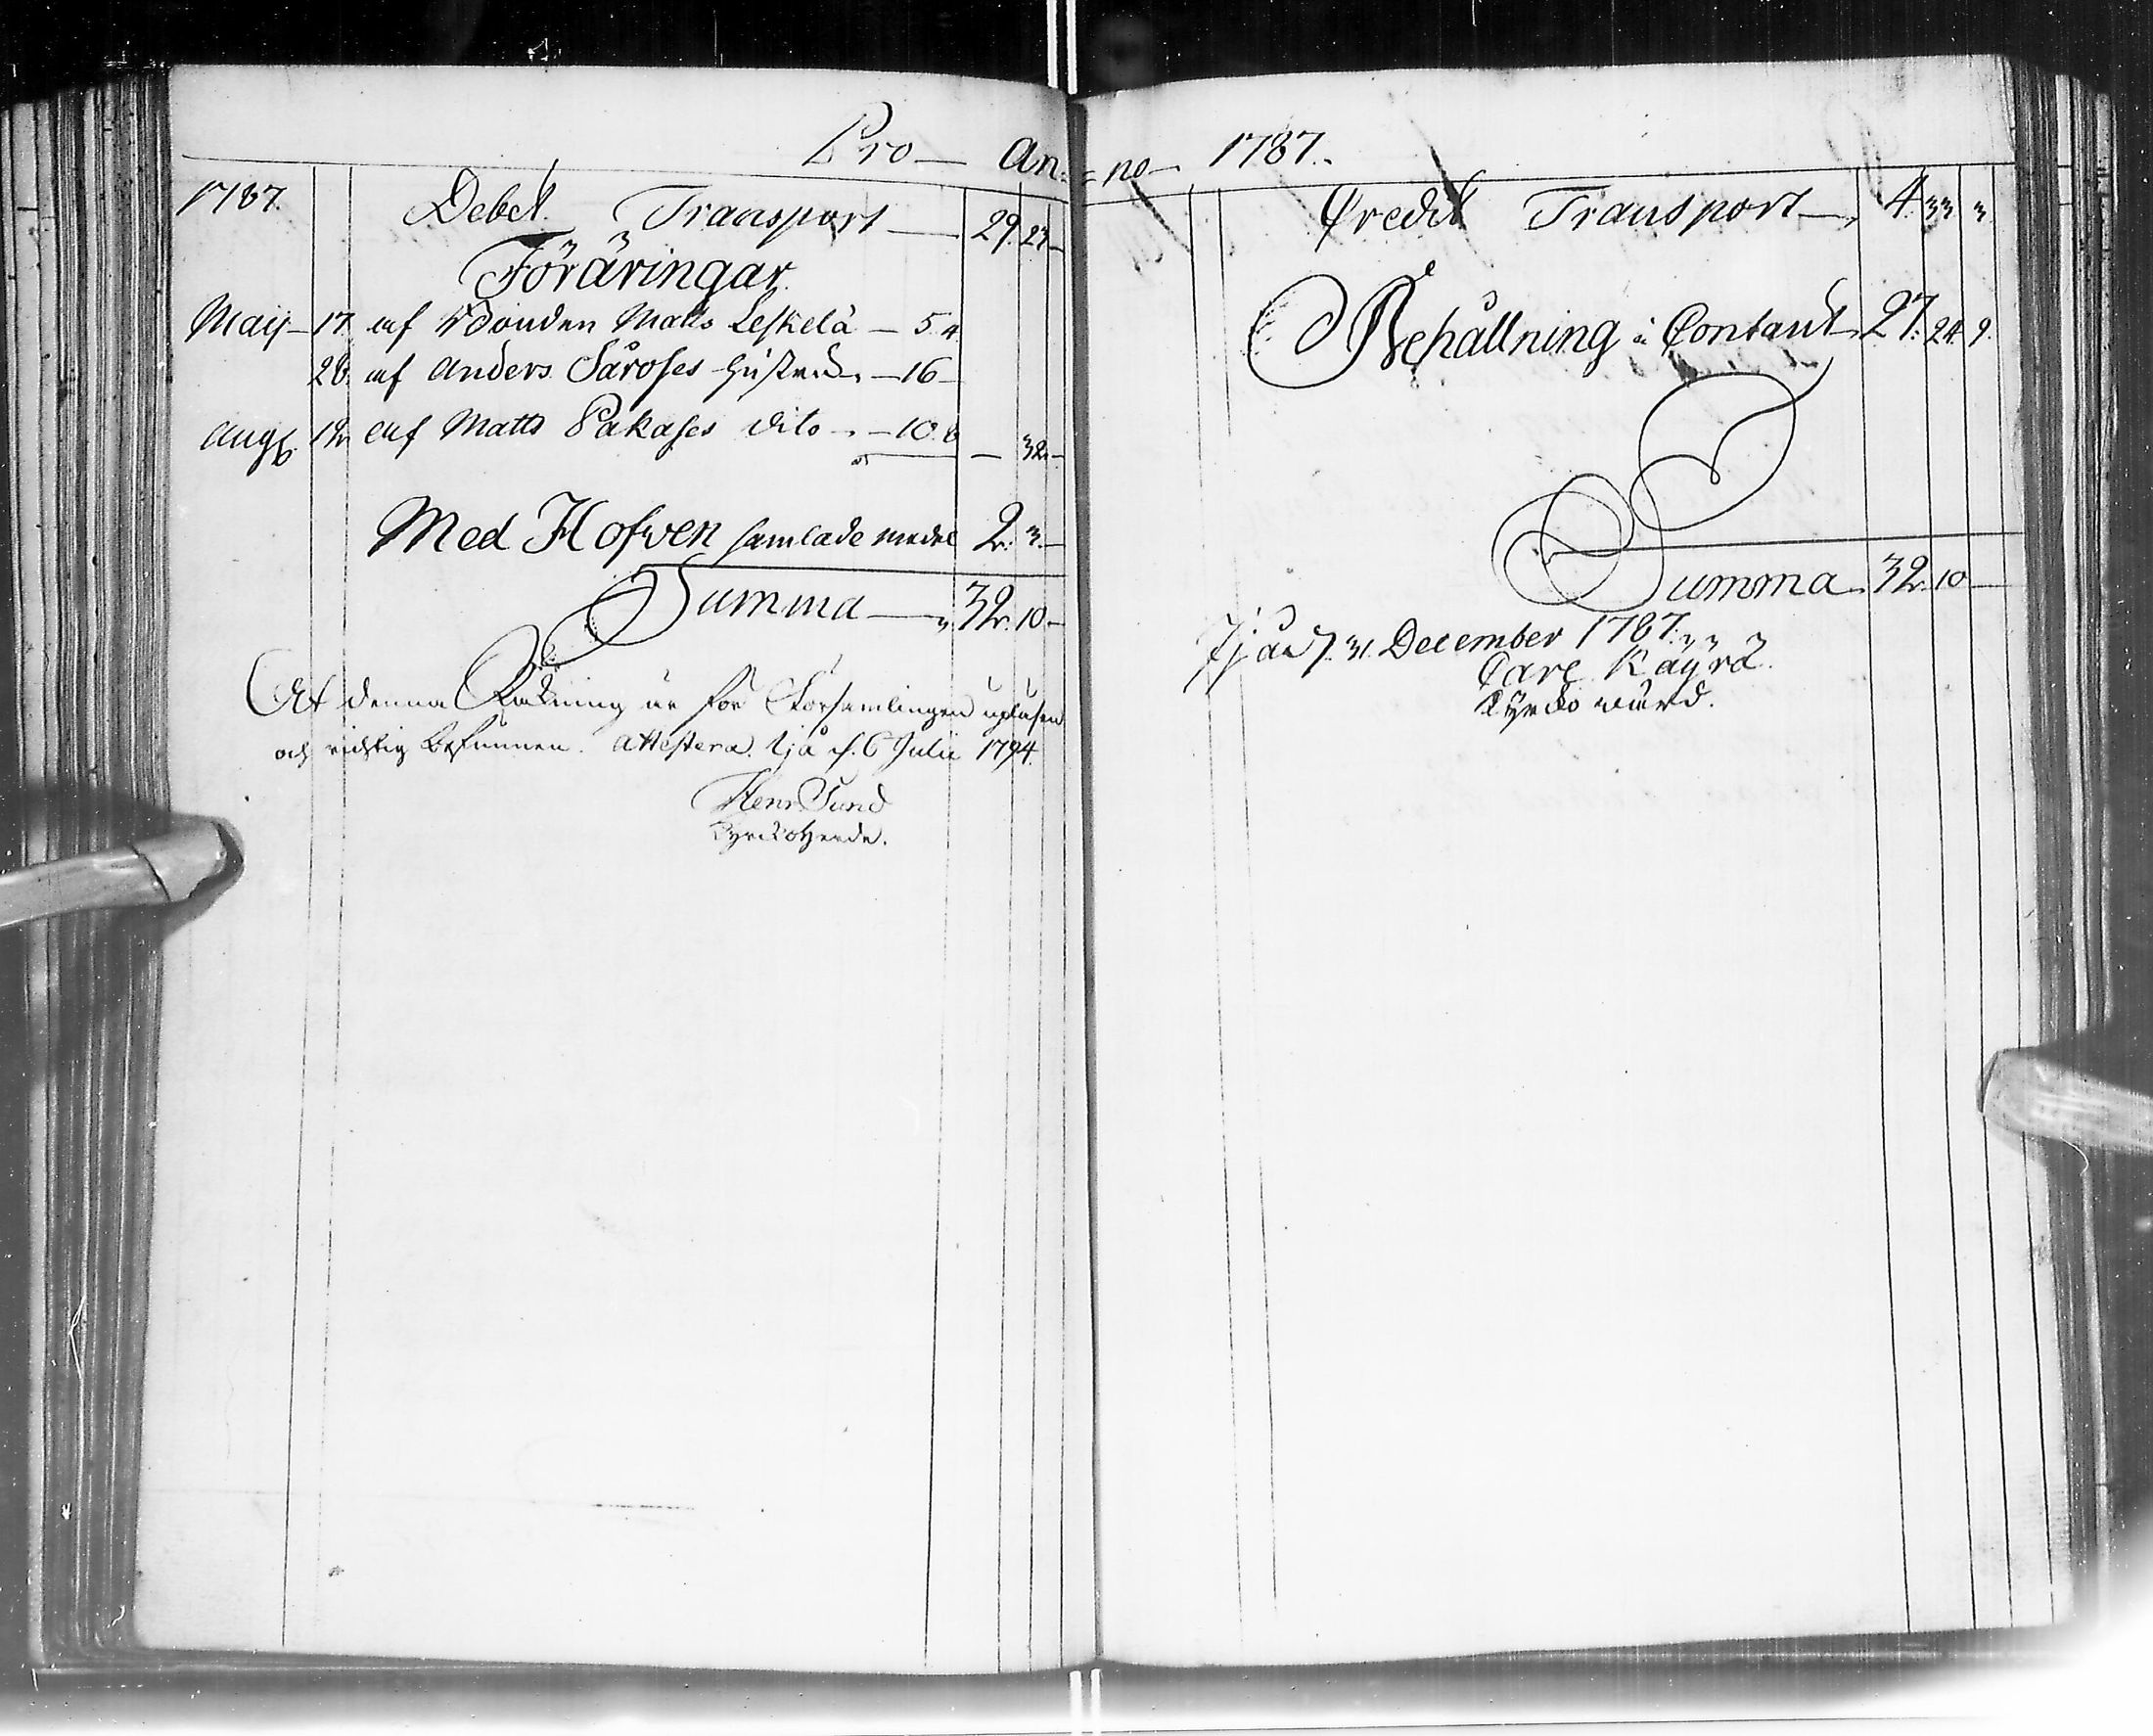 Pro — An=
1787. Debet. Transport — 29. 23 —
Föräringar
Maij — 17. af Bonden Matts Leskelä — 5. 4
28. af Anders Saroses hustru — 16 —
Aug. 12 af Matts Pakases dito — 10. 8 — 32. —
Med Hofwen samlade medel 2. 3. —
Summa — 32. 10 —
At denna Räkning är för Församlingen upläsen
och richtig befunnen. Attestera. Ijå d. 6 Julii 1794.
Henr Sund
Kyrckoherde.
=no — 1787.
Credit Transport — 4. 33 3
Behållning i Contant 27. 24. 9.
Summa 32. 10 —
Ijå d. 31. December 1787.
Carl Käyrä.
Kyrko wärd.